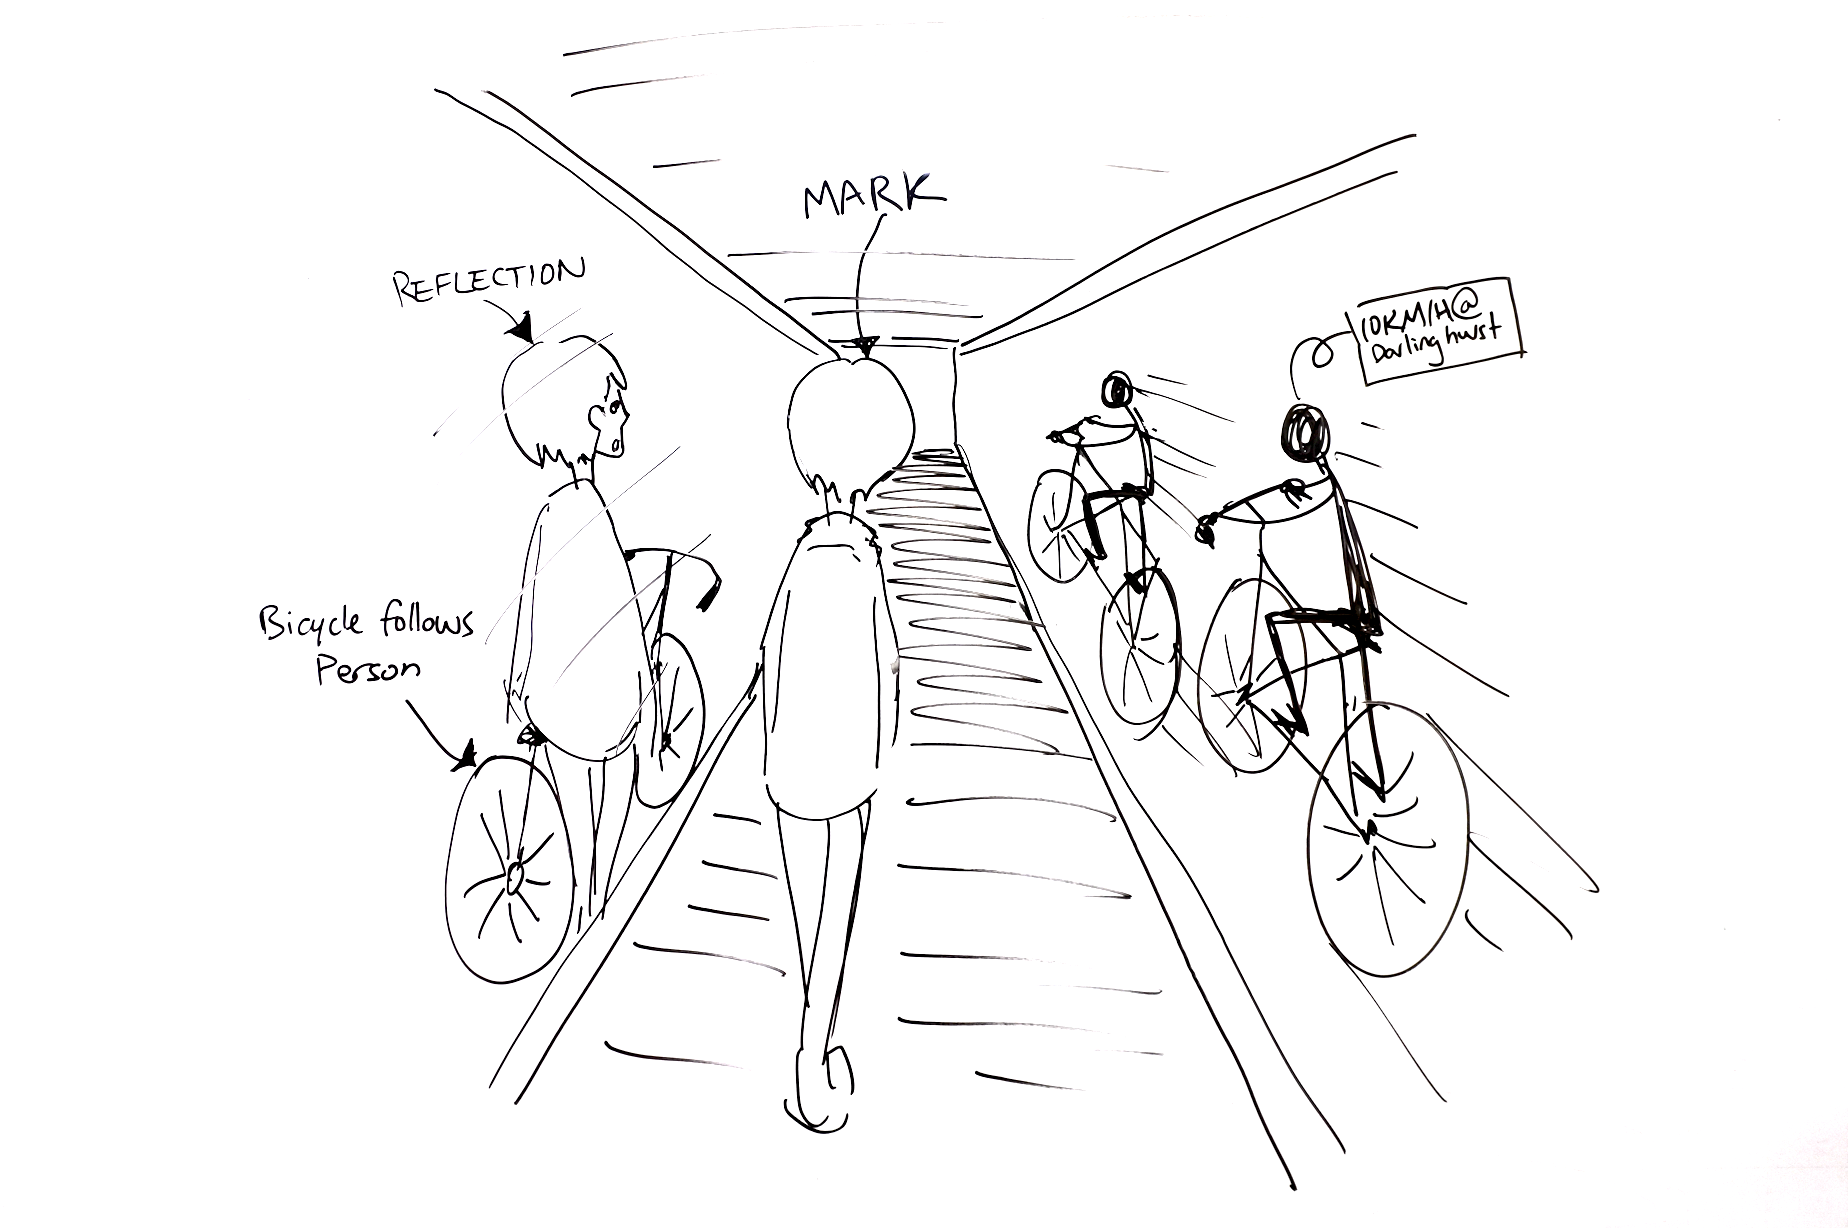 MARK
REFLECTION
10KM/H@
Darlinghurst
Bicycle follows
Person